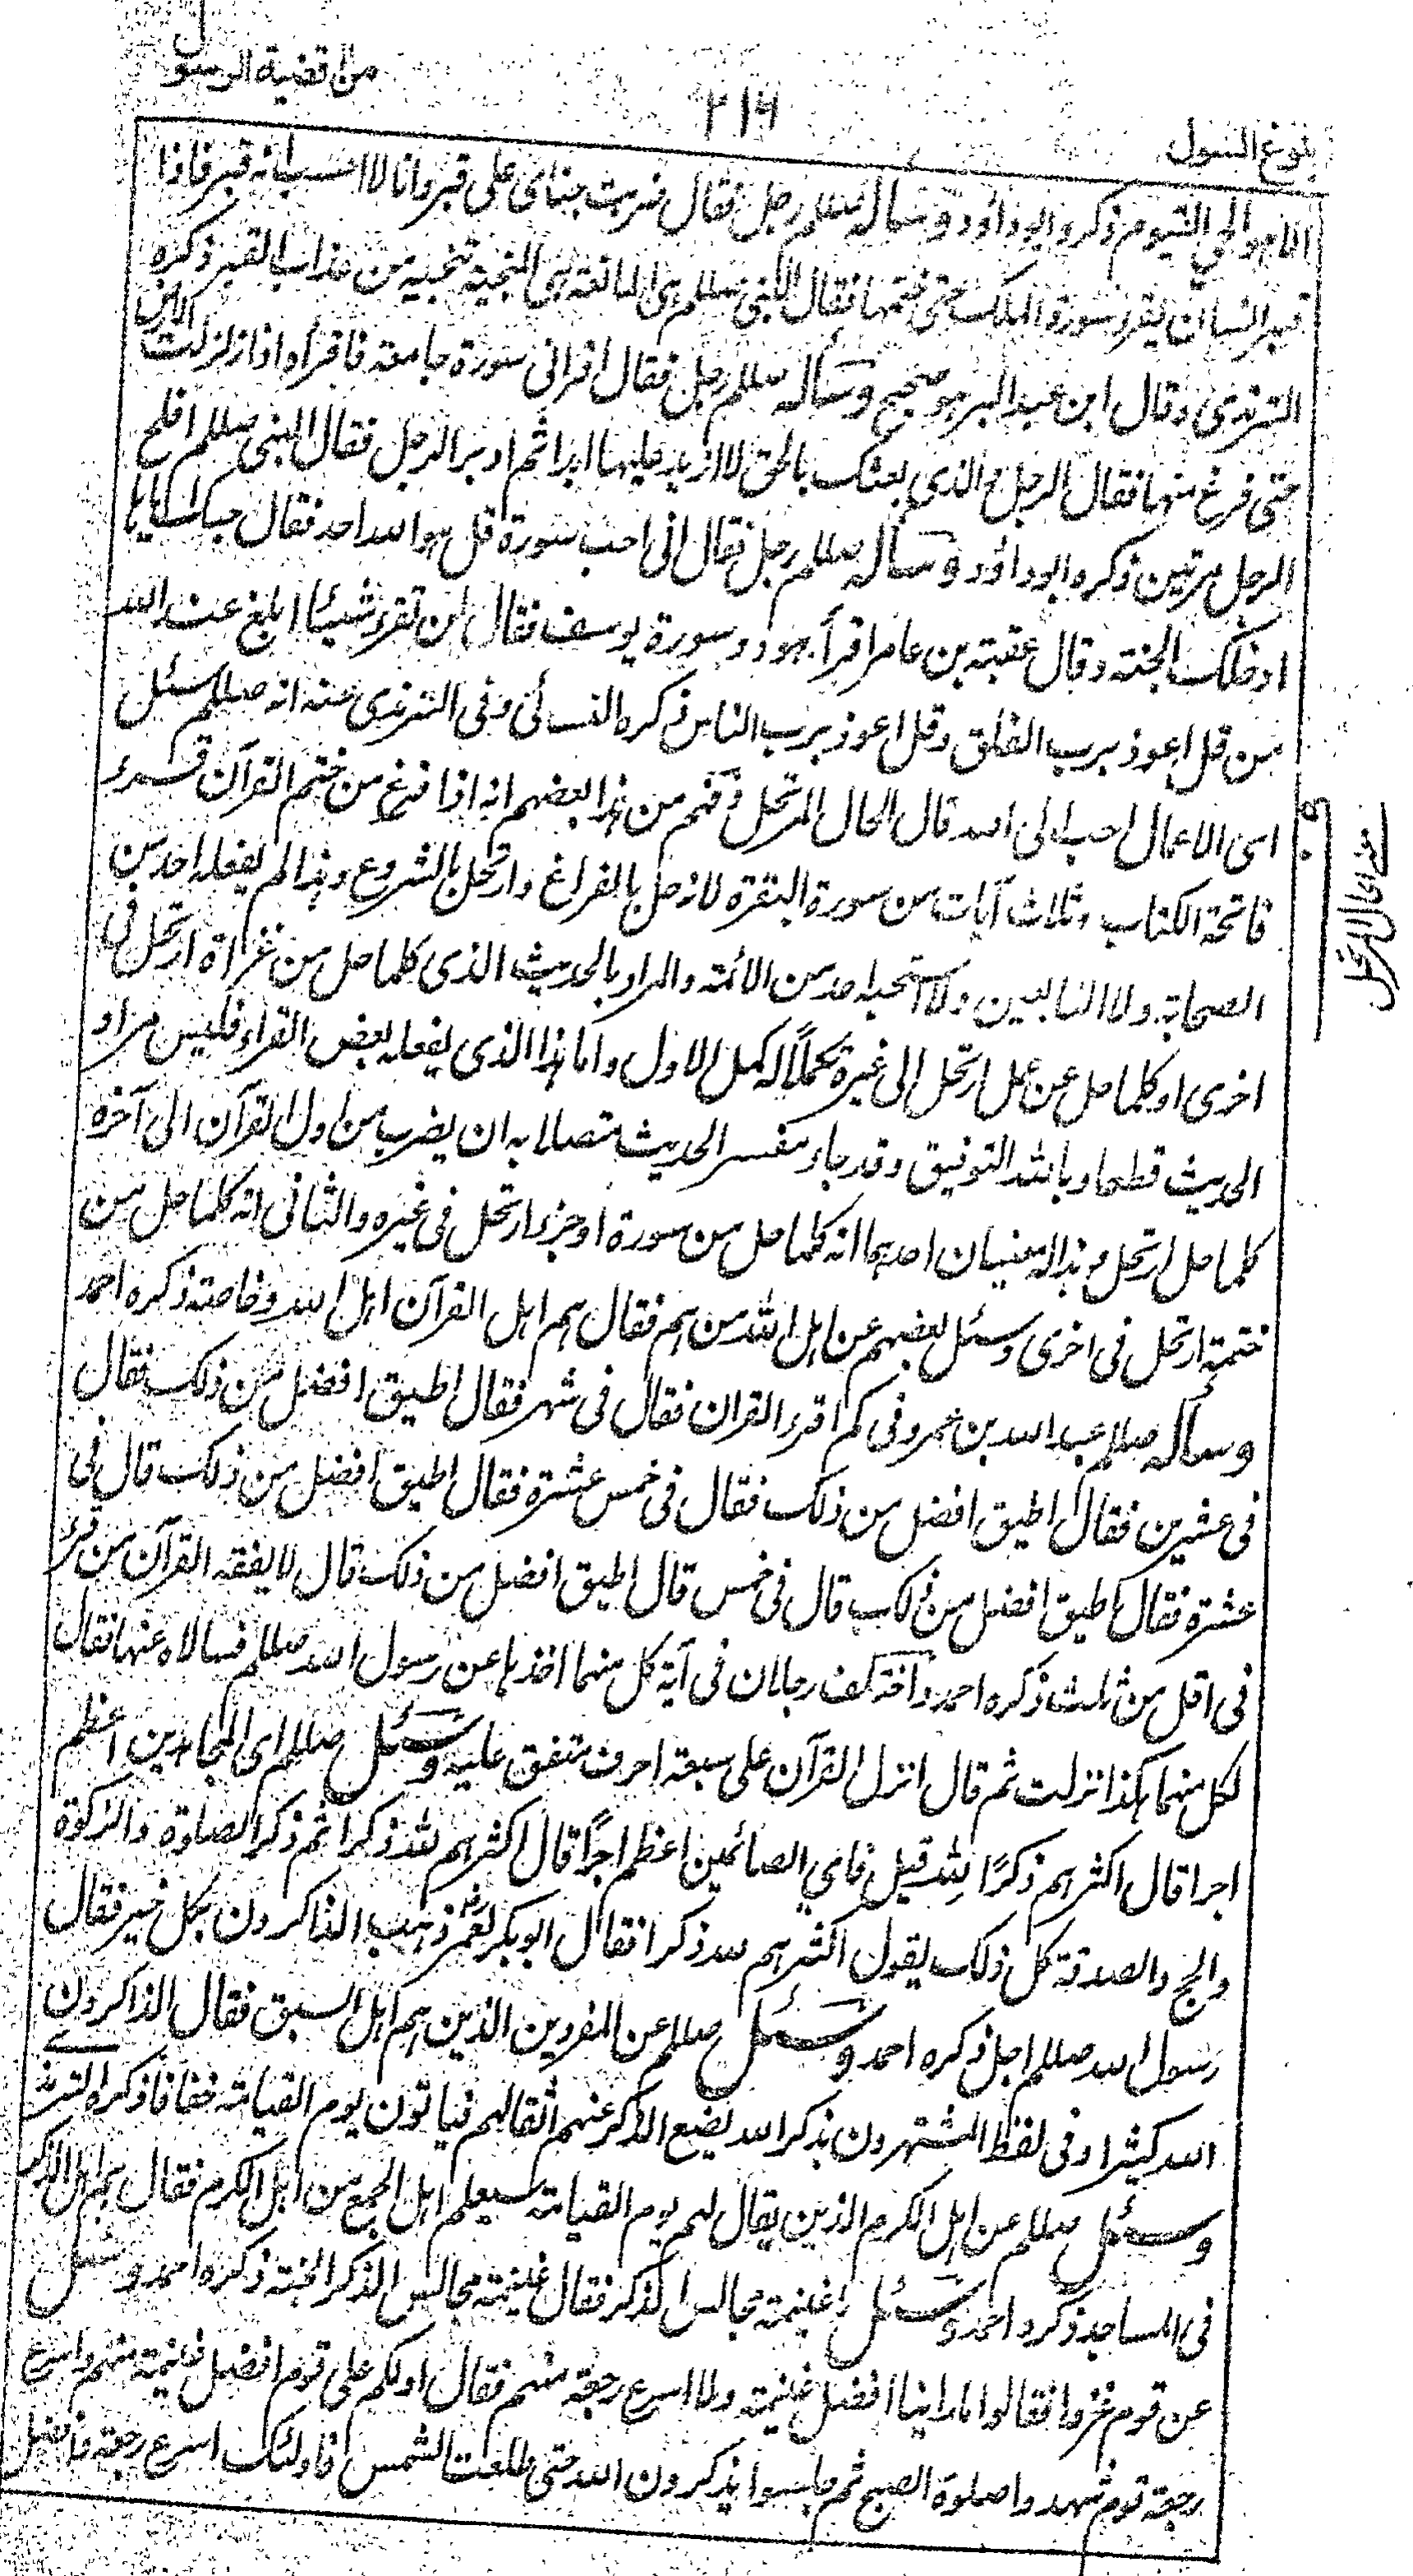 بلوغ السول
۲۱۶
من اقضية الرسول
الا هو الحي القيوم ذكره ابو داؤد وسأله صللم رجل فقال ضربت خبائى على قبر وانا لا احسب انه قبر فاذا
قبر انسان يقرء سورة الملك حتى ختمها فقال النبى صللم هى المانعة هى المنجية تنجيه من عذاب القبر ذكره
الترمذى وقال ابن عبد البر هو صحيح وسأله صللم رجل فقال اقرأنى سورة جامعة فاقرأه اذا زلزلت الارض
حتى فرغ منها فقال الرجل والذي بعثك بالحق لا ازيد عليها ابدا ثم ادبر الرجل فقال النبى صللم افلح
الرجل مرتين ذكره ابو داؤد وسأله صللم رجل فقال انى احب سورة قل هو الله احد فقال حبك اياها
ادخلك الجنة وقال عقبة بن عامر اقرأ بهود وسورة يوسف فقال لن تقرء شيئا ابلغ عند الله
من قل اعوذ برب الفلق وقل اعوذ برب الناس ذكره النسائى وفى الترمذى عنه انه صللم سئل
اى الاعمال احب الى الله قال الحال المرتحل وفهم من هذا بعضهم انه اذا فرغ من ختم القرآن قرء
فاتحة الكتاب وثلاث آيات من سورة البقرة لانه حل بالفراغ وارتحل بالشروع وهذا لم يفعله احد من
الصحابة ولا التابعين ولا استحبه احد من الائمة والمراد بالحديث الذى كلما حل من غزاة ارتحل فى
اخرى او كلما حل عن عمل ارتحل الى غيره تكملاً له كمل الاول واما هذا الذى يفعله بعض القراء فليس مراد
الحديث قطعا وبالله التوفيق وقد جاء مفسر الحديث متصلا به ان يضرب من اول القرآن الى آخره
كلما حل ارتحل وهذا له معنيان احدهما انه كلما حل من سورة او جزء ارتحل فى غيره والثانى انه كلما حل من
ختمة ارتحل فى اخرى وسئل بعضهم عن اهل الله من هم فقال هم اهل القرآن اهل الله وخاصته ذكره احمد
وسأله صللم عبد الله بن عمرو فى كم اقرء القران فقال فى شهر فقال اطيق افضل من ذلك فقال
فى عشرين فقال اطيق افضل من ذلك فقال فى خمس عشرة فقال اطيق افضل من ذلك قال فى
عشرة فقال اطيق افضل من ذلك قال فى خمس قال اطيق افضل من ذلك قال لا يفقه القرآن من قرء
فى اقل من ثلث ذكره احمد واختلف رجلان فى آية كل منهما اخذها عن رسول الله صللم فسالاه عنها فقال
لكل منهما هكذا نزلت ثم قال انزل القرآن على سبعة احرف متفق عليه وسئل صللم اى المجاهدين اعظم
اجرا قال اكثرهم ذكرًا لله قيل فاي الصائمين اعظم اجرًا قال اكثرهم لله ذكرا ثم ذكر الصلوة والزكوة
والحج والصدقة كل ذلك يقول اكثرهم لله ذكرا فقال ابو بكر لعمر ذهب الذاكرون بكل خير فقال
رسول الله صللم اجل ذكره احمد وسئل صللم عن المفردين الذين هم اهل السبق فقال الذاكرون
الله كثيرا وفى لفظ المشتهرون بذكر الله يضع الذكر عنهم اثقالهم فياتون يوم القيامة خفافا ذكره الترمذى
وسئل صللم عن اهل الكرم الذين يقال لهم يوم القيامة سيعلم اهل الجمع من اهل الكرم فقال هم اهل الذكر
فى المساجد ذكره احمد وسئل ما غنيمة مجالس الذكر فقال غنيمة مجالس الذكر الجنة ذكره احمد وسئل
عن قوم غزوا فقالوا ما راينا افضل غنيمة ولا اسرع رجعة منهم فقال ادلكم على قوم افضل غنيمة منهم واسرع
رجعة قوم شهدوا صلوة الصبح ثم جلسوا يذكرون الله حتى طلعت الشمس فاولئك اسرع رجعة فافضل
معنى الحال المرتحل